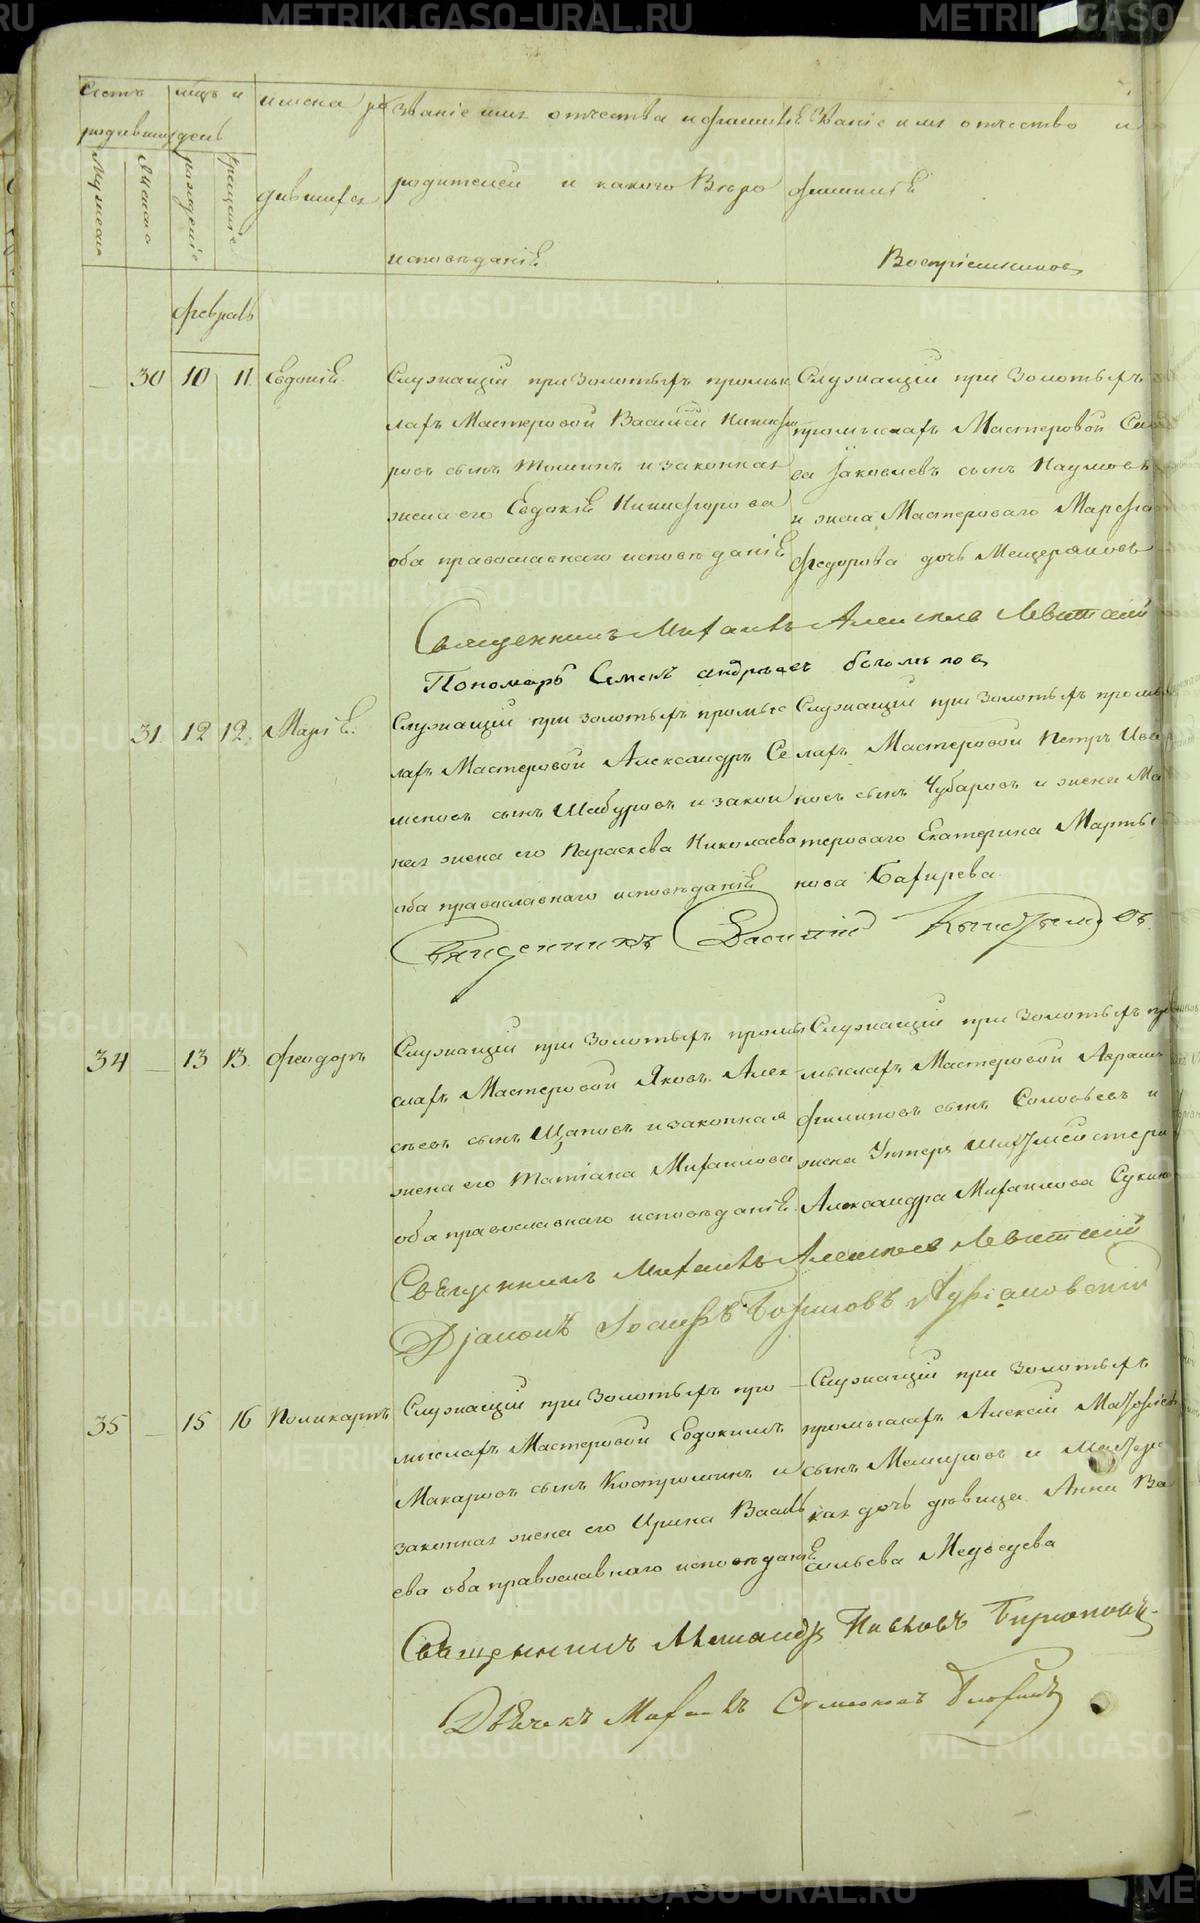 Счетъ
мцъ и
имена ро
Званіе имя отчества и фамиліѧ
Званіе имя отчество и
родившихся
день
дившихся
родителей и какого Вѣро
фамиліѧ
Мужеска
Женска
рожденіе
крещеніе
исповѣданіѧ
Воспріемниковъ
февраль
30 10 11. Евдокіѧ.
Служащій при Золотыхъ промыс
лахъ Мастеровой Василій Никифо
ровъ сынъ Томинъ и законная
жена его Евдокіѧ Никифорова
оба православнаго исповѣданіѧ
Служащій при Золотыхъ
промыслахъ Мастеровой
ва Яковлевъ сынъ Наумовъ
и жена Мастероваго Марфа
Федорова дочь Мещерякова
Священникъ Михаилъ Алексѣевъ Левитскій
Пономарь Семенъ андрѣевъ богомоловъ
31. 12 12. Маріѧ.
Служащій при Золотыхъ промыс
лахъ Мастеровой Александръ Се
меновъ сынъ Шабуровъ и закон
ная жена его Параскева Николаева
оба православнаго исповѣданіѧ
Служащій при Золотыхъ промыс
лахъ Мастеровой Петръ Ива
новъ сынъ Чубаровъ и жена Мас
тероваго Екатерина Марты
нова Бахирева.
Священникъ Василій
34 — 13 13. Феодоръ
Служащій при Золотыхъ промы
слахъ Мастеровой Яковъ Алек
сѣевъ сынъ Щаповъ и законная
жена его Татіана Михаилова
оба православнаго исповѣданіѧ.
Служащій при Золотыхъ про
мыслахъ Мастеровой Аврамъ
Филиповъ сынъ Соловьевъ и
жена Унтеръ Шихтмейстера
Александра Михаилова
Священникъ Михаилъ Алексѣевъ Левитскій
Діаконъ Іосифъ
35 — 15 16 Поликарпъ
Служащій при Золотыхъ про
мыслахъ Мастеровой Евдокимъ
Макаровъ сынъ Костроминъ и
законная жена его Ирина Василь
ева оба православнаго исповѣданіѧ
Служащій при Золотыхъ
промыслахъ Алексій
сынъ и Мастерс
кая дочь дѣвица Анна Ва
сильева Медведева
Священникъ Александръ Павловъ
Дьячекъ Михаилъ
METRIKI.GASO-URAL.RU